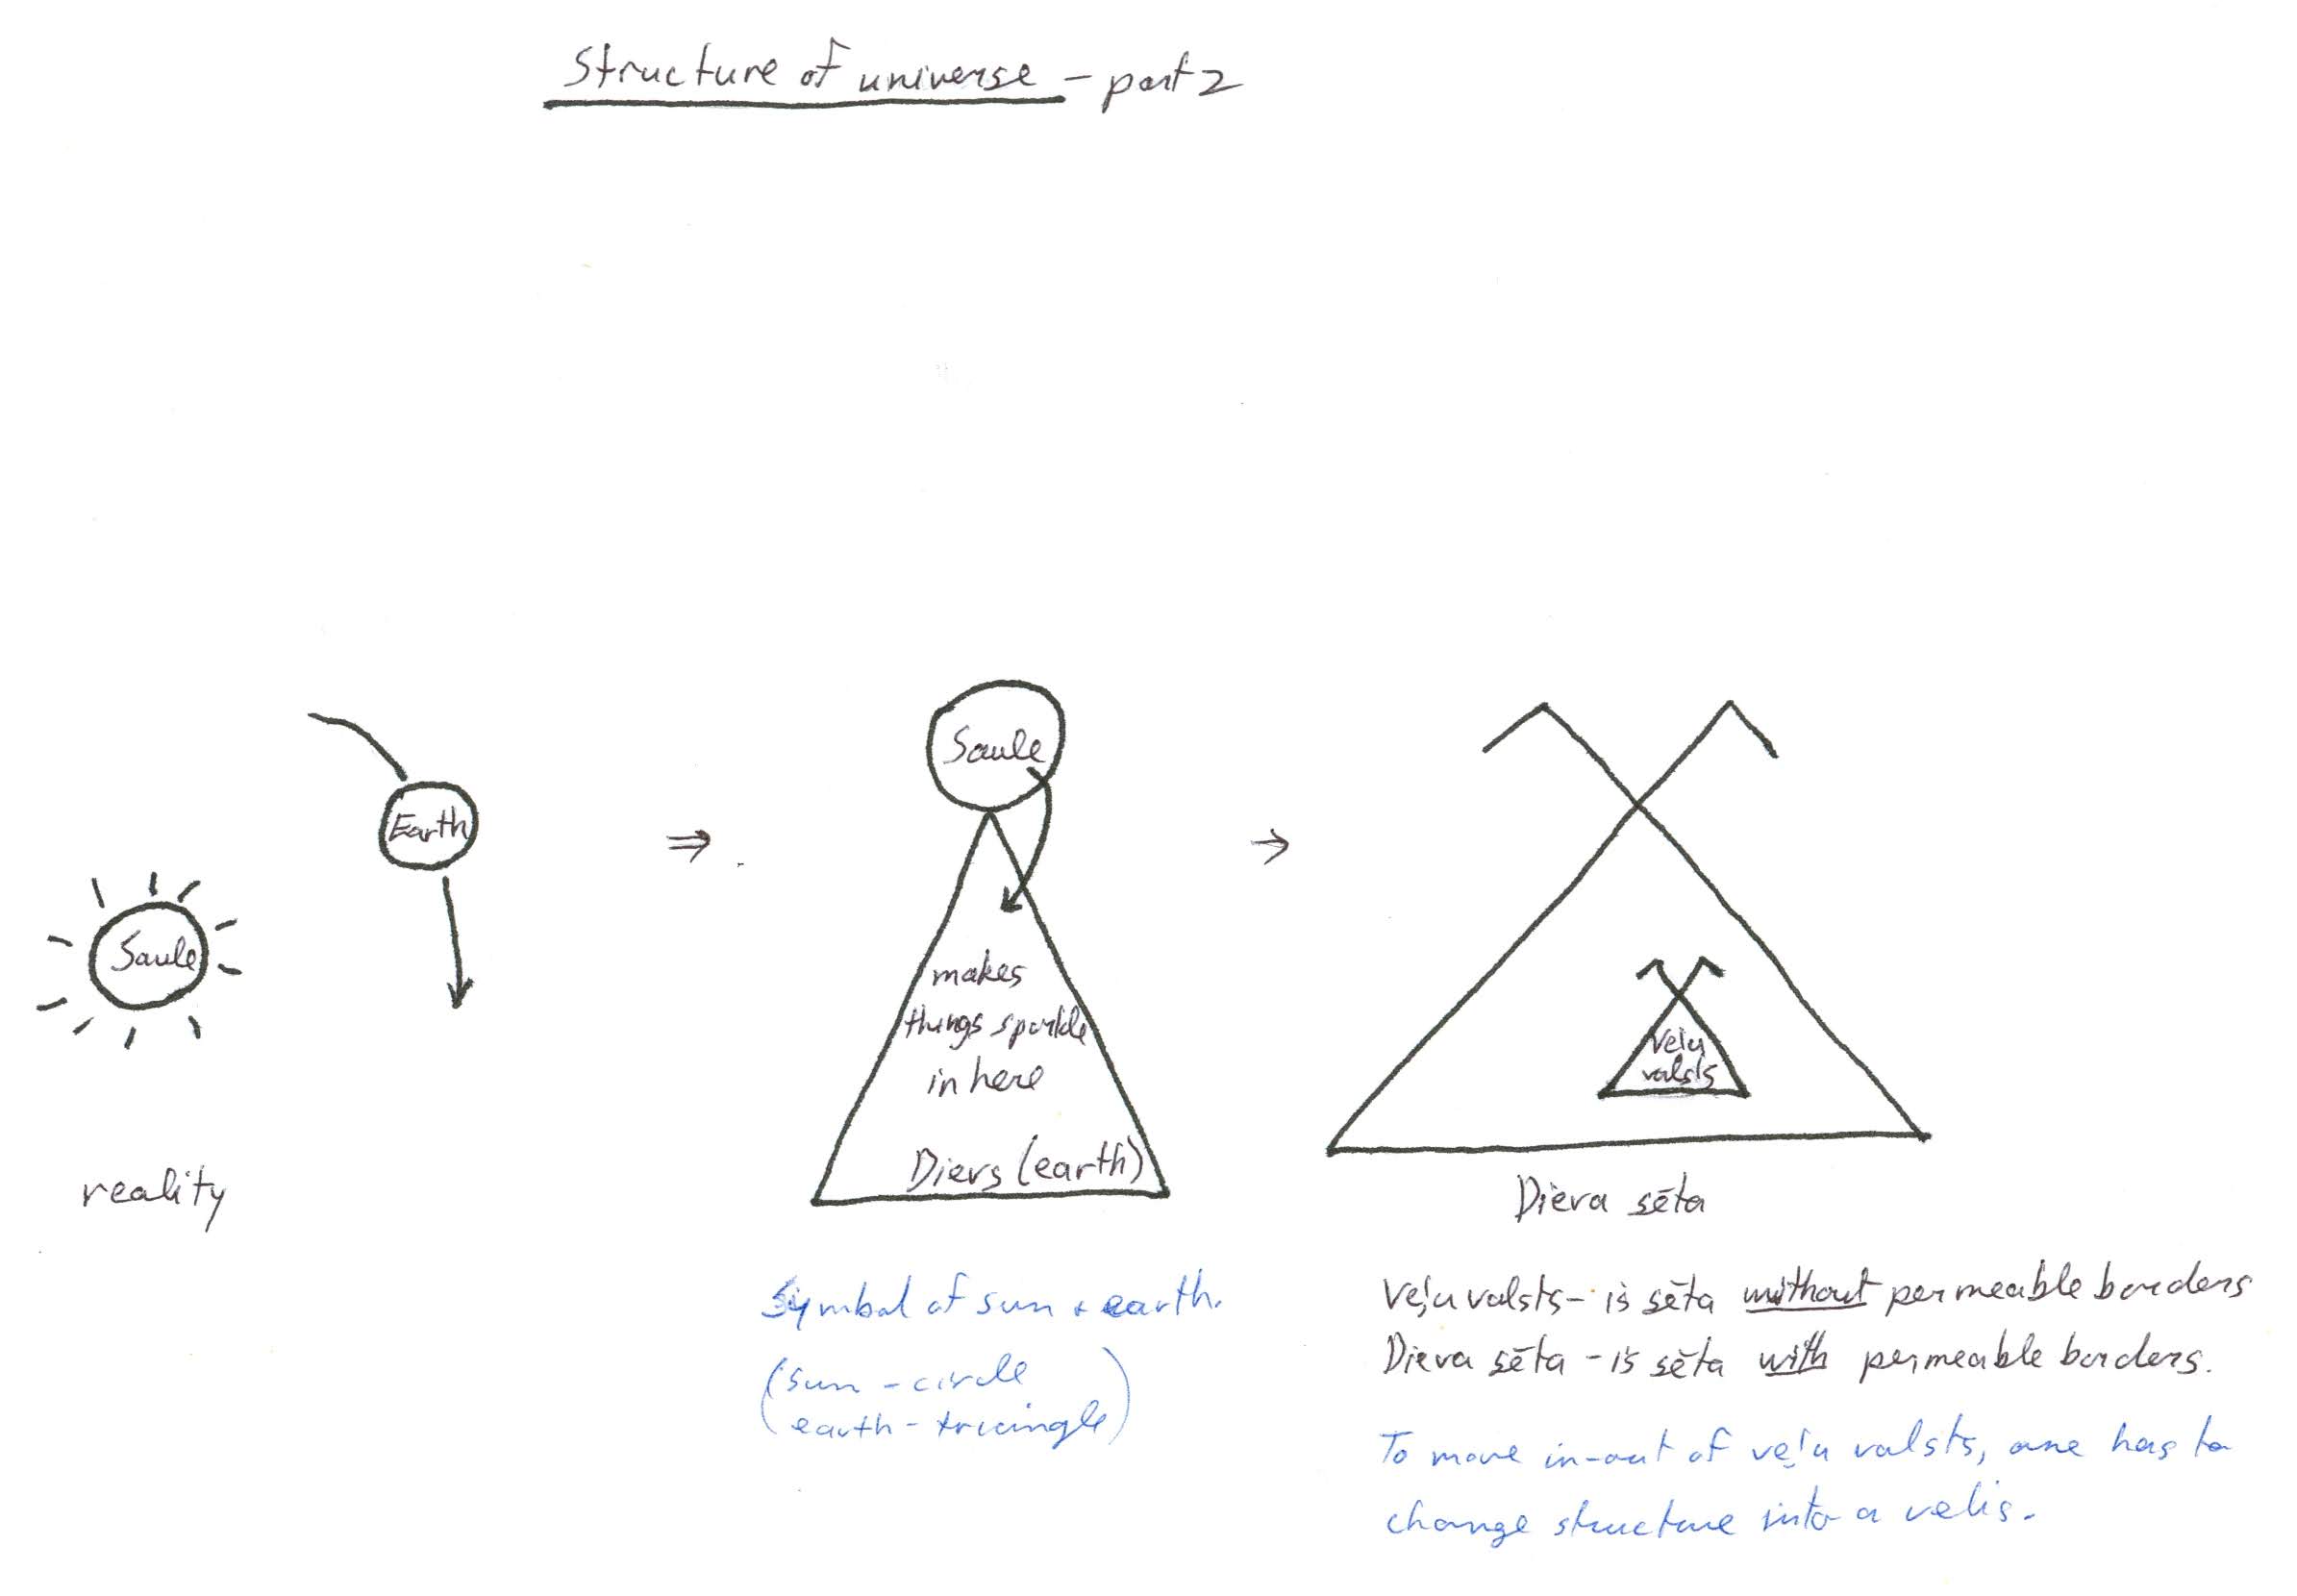 Structure of universe - part 2
Earth
Saule
reality
⇒
Saule
makes
things sparkle
in here
Dievs (earth)
Symbol of sun + earth.
(sun - circle
earth - triangle)
→
Veļu
valsts
Dieva sēta
Veļu valsts - is sēta without permeable borders
Dieva sēta - is sēta with permeable borders.
To move in-out of veļu valsts, one has to
change structure into a velis.